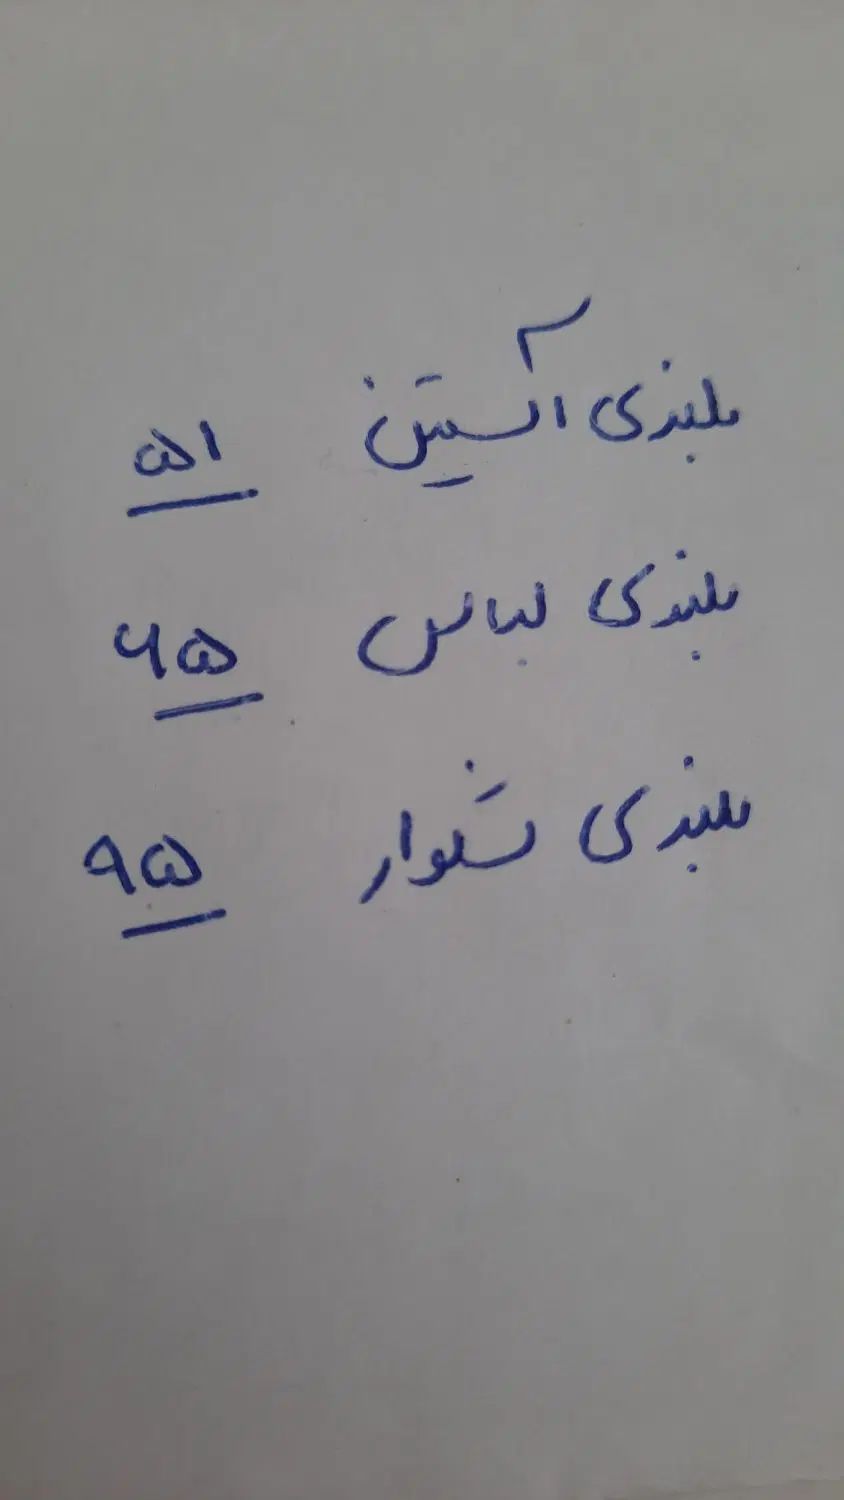 بلندی آستین ۵۱
بلندی لباس ۶۵
بلندی شلوار ۹۵